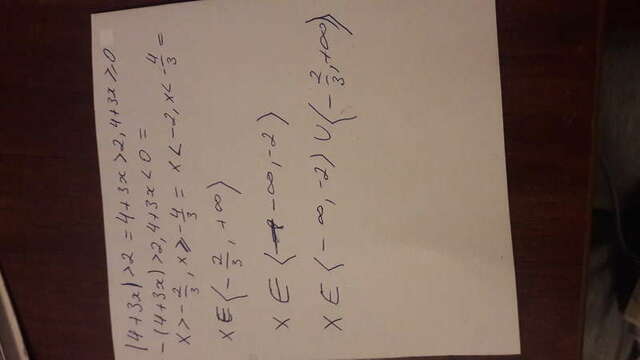 |4+3x|>2 = 4+3x>2, 4+3x≥0
-(4+3x)>2, 4+3x<0 =
x>-2/3, x≥-4/3 = x<-2, x<-4/3 =
x∈⟨-2/3, +∞⟩
x∈⟨-∞, -2⟩
x∈⟨-∞, -2⟩∪⟨-2/3, +∞⟩